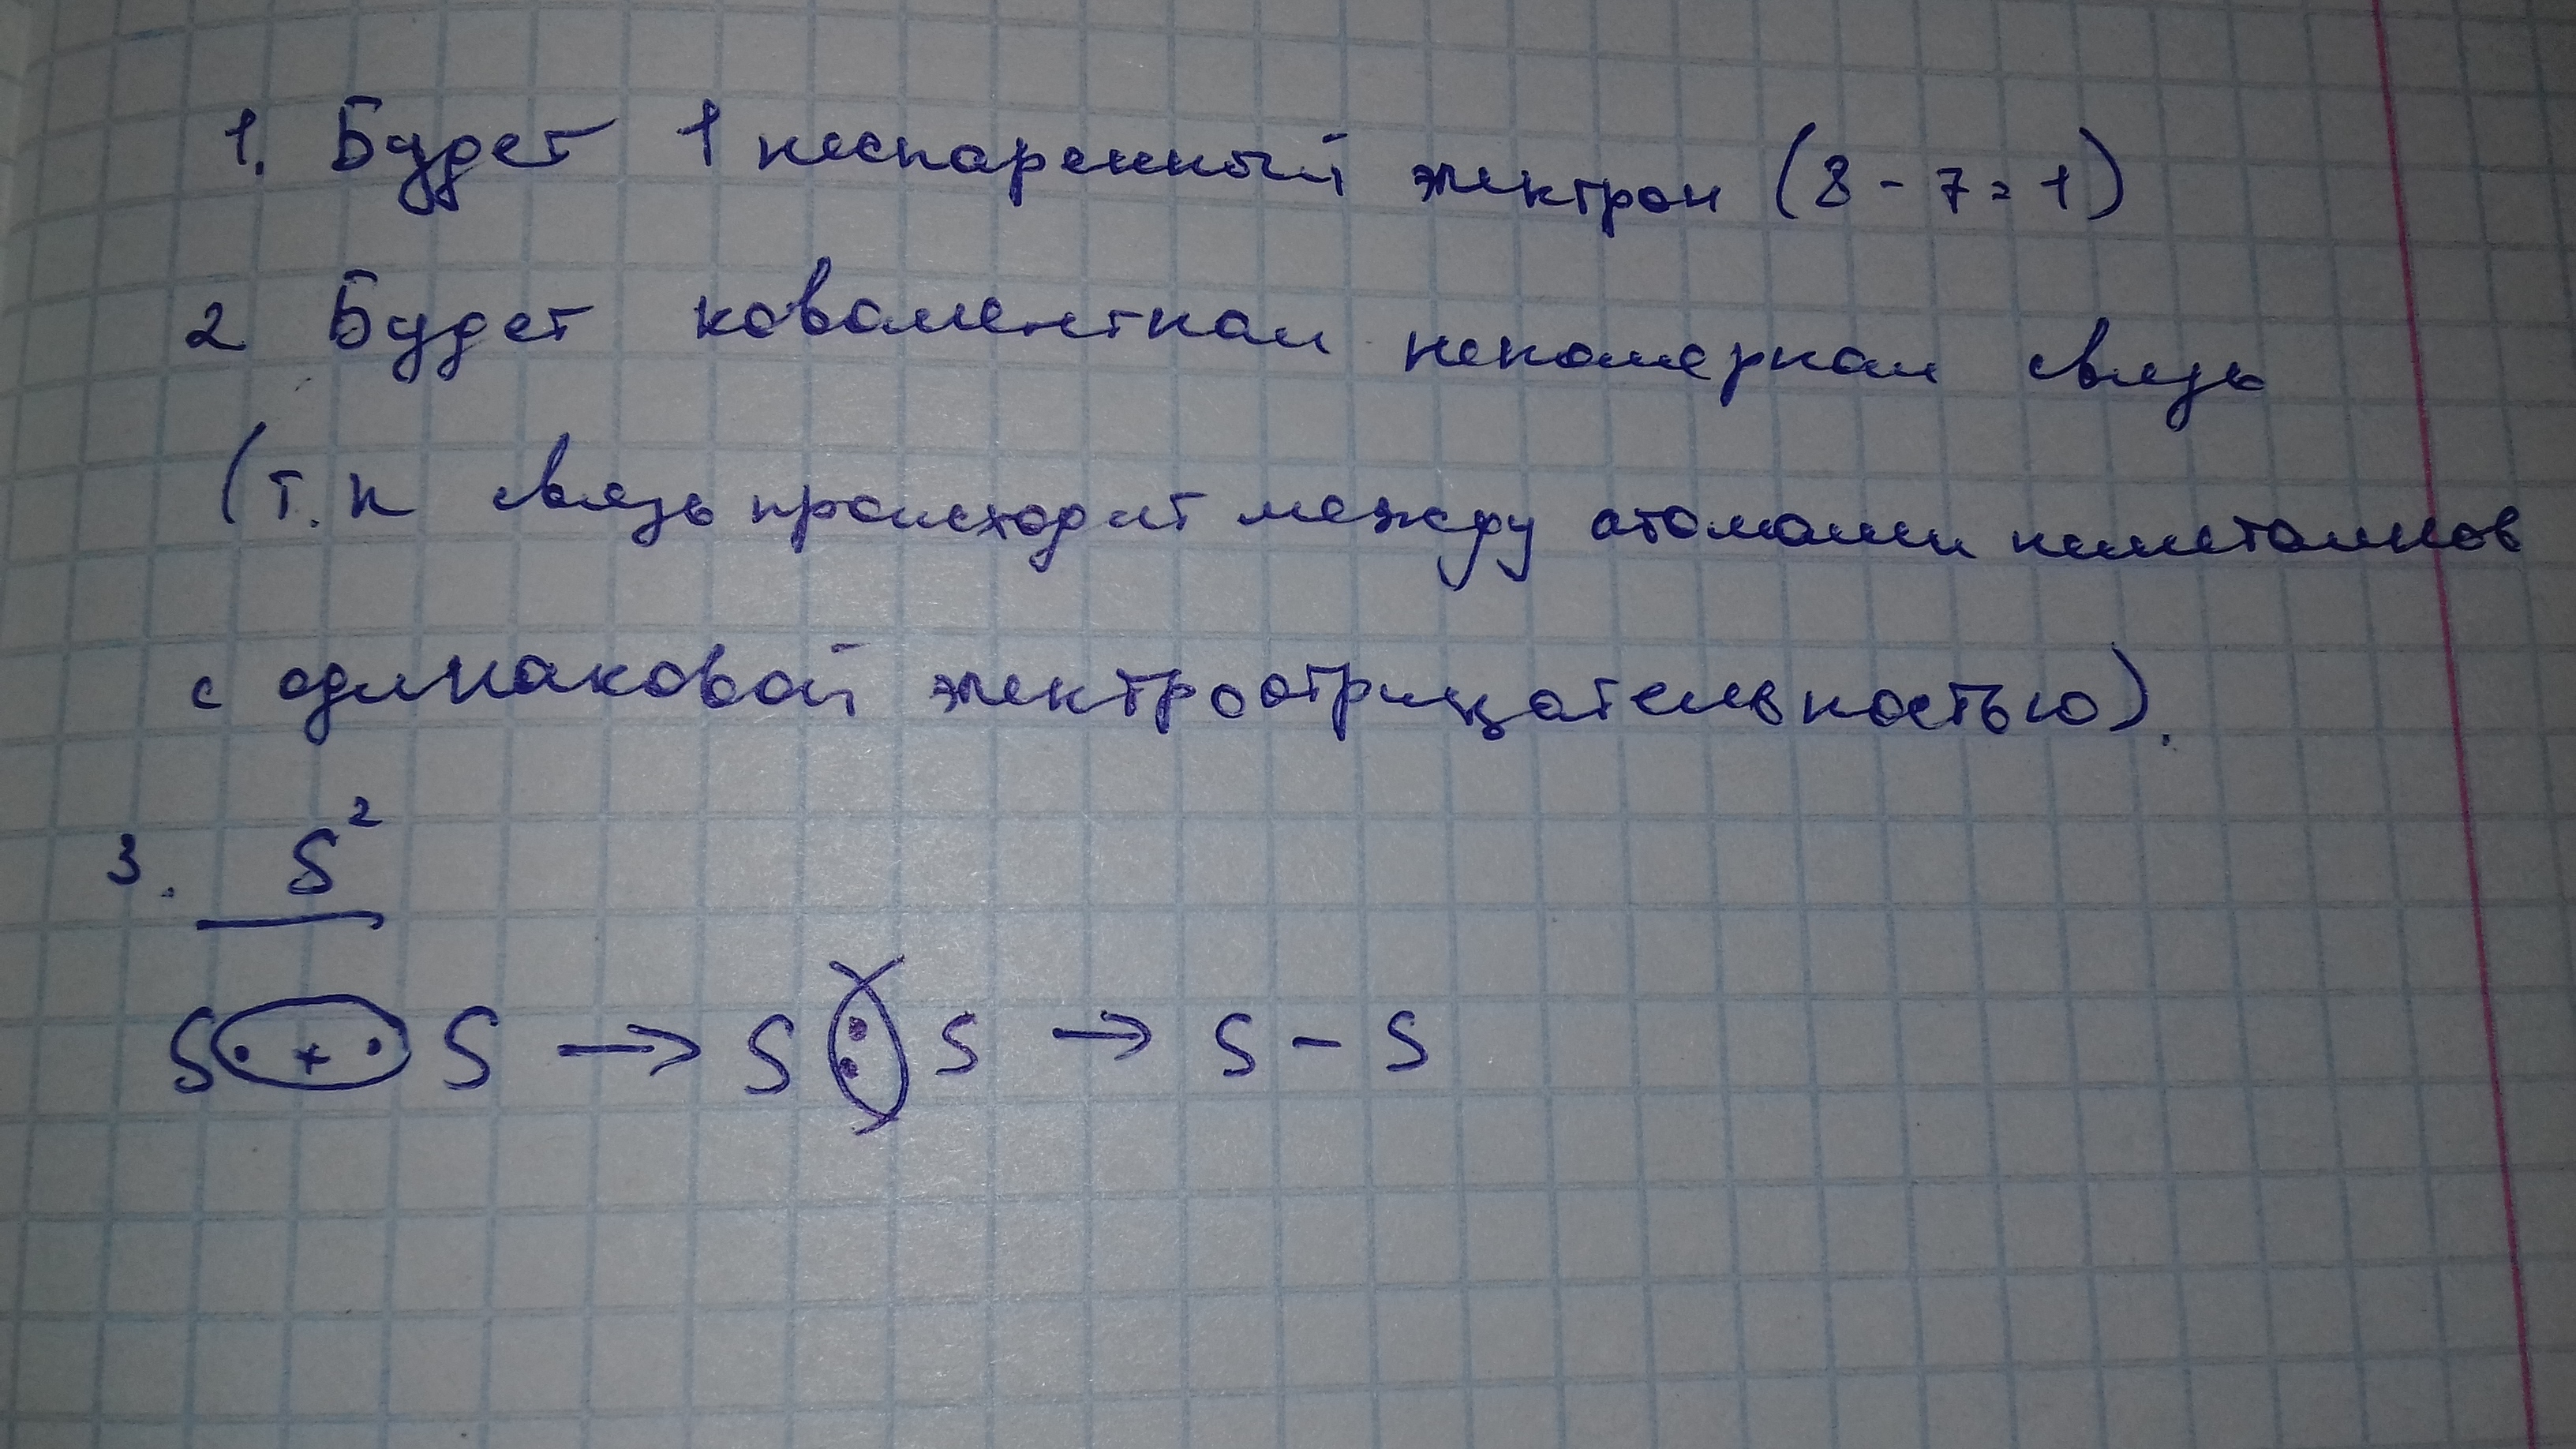 1. Будет 1 неспаренный электрон (8 - 7 = 1)
2 Будет ковалентная неполярная связь
(т.к связь происходит между атомами неметаллов
с одинаковой электроотрицательностью).
3. S²
S · + · S → S : S → S - S